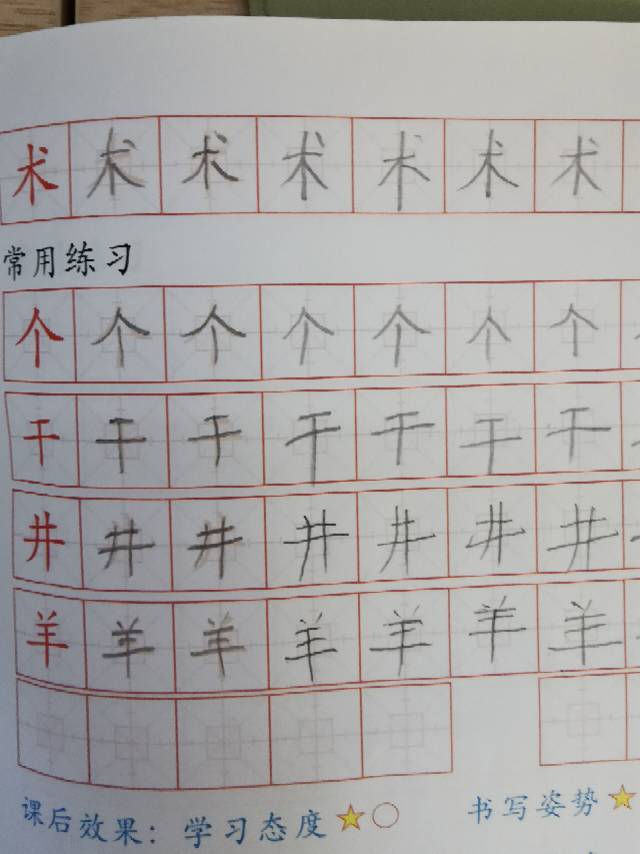 术术术术术术术
常用练习
个个个个个个个
干干干干干干干
井井井井井井井
羊羊羊羊羊羊羊
课后效果：学习态度 书写姿势